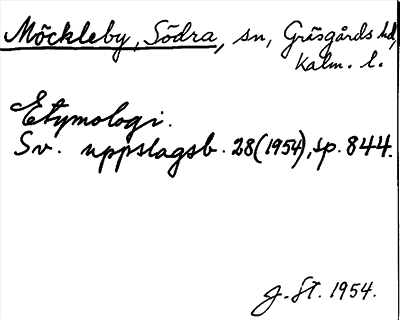 Möckleby, Södra, sn, Gräsgårds hd,
Kalm. l.
Etymologi.
Sv. uppslagsb. 28 (1954), sp. 844.
J. St. 1954.